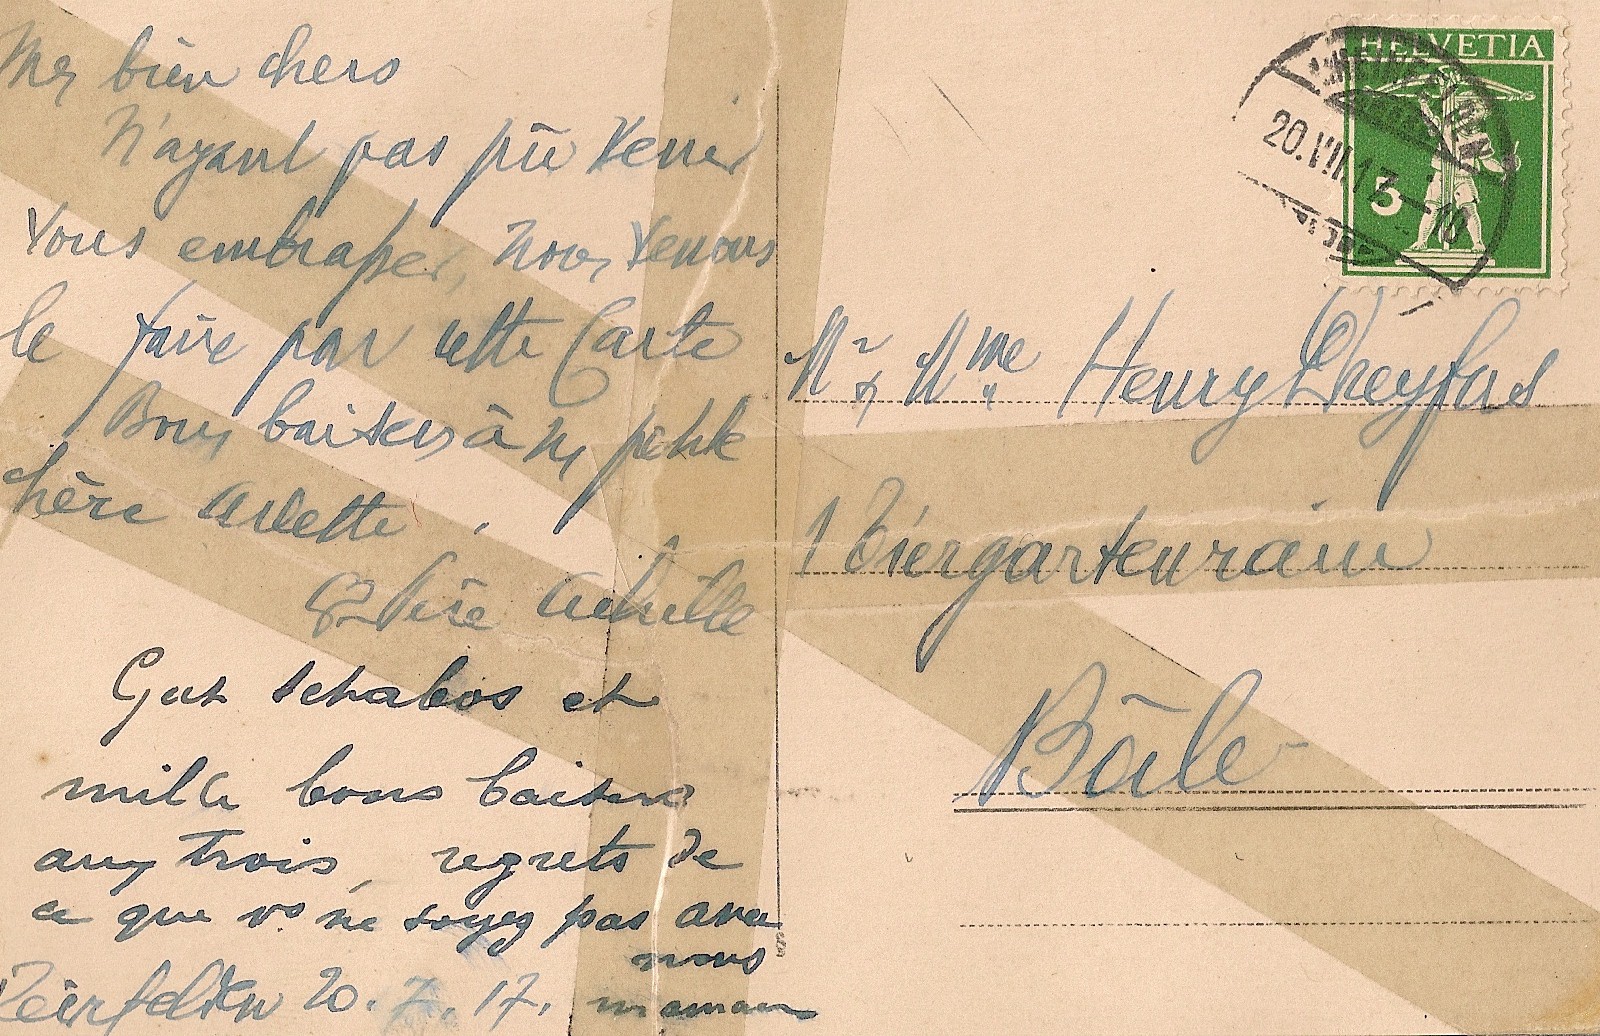 Mes bien chers
N'ayant pas pû venir
vous embrasser, nous venons
le faire par cette Carte
Bons baisers à ma petite
chère Arlette,
Père Achille
Gut schabos et
mille bons baisers
aux trois, regrets de
ce que vs ne soyez pas avec
nous
20.7.17. maman
HELVETIA
5
20.VII.17-10
Mr & Mme Henry Dreyfus
1 Tiergartenrain
Bâle